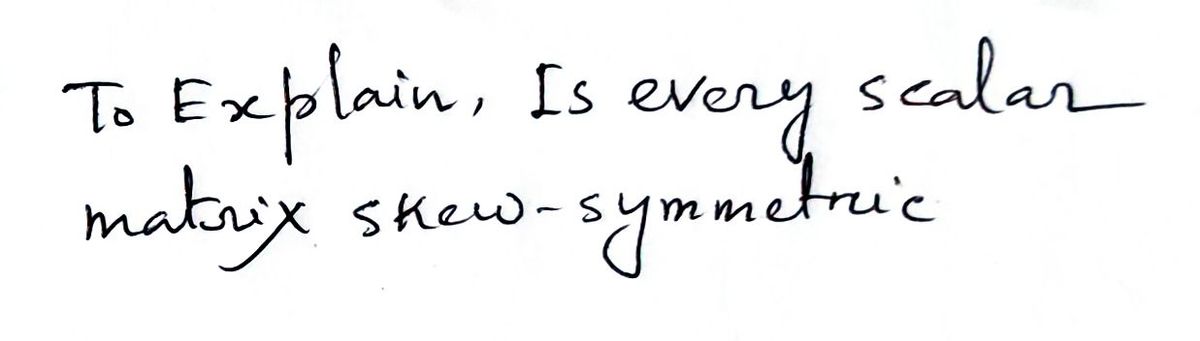 To Explain, Is every scalar
matrix skew-symmetric